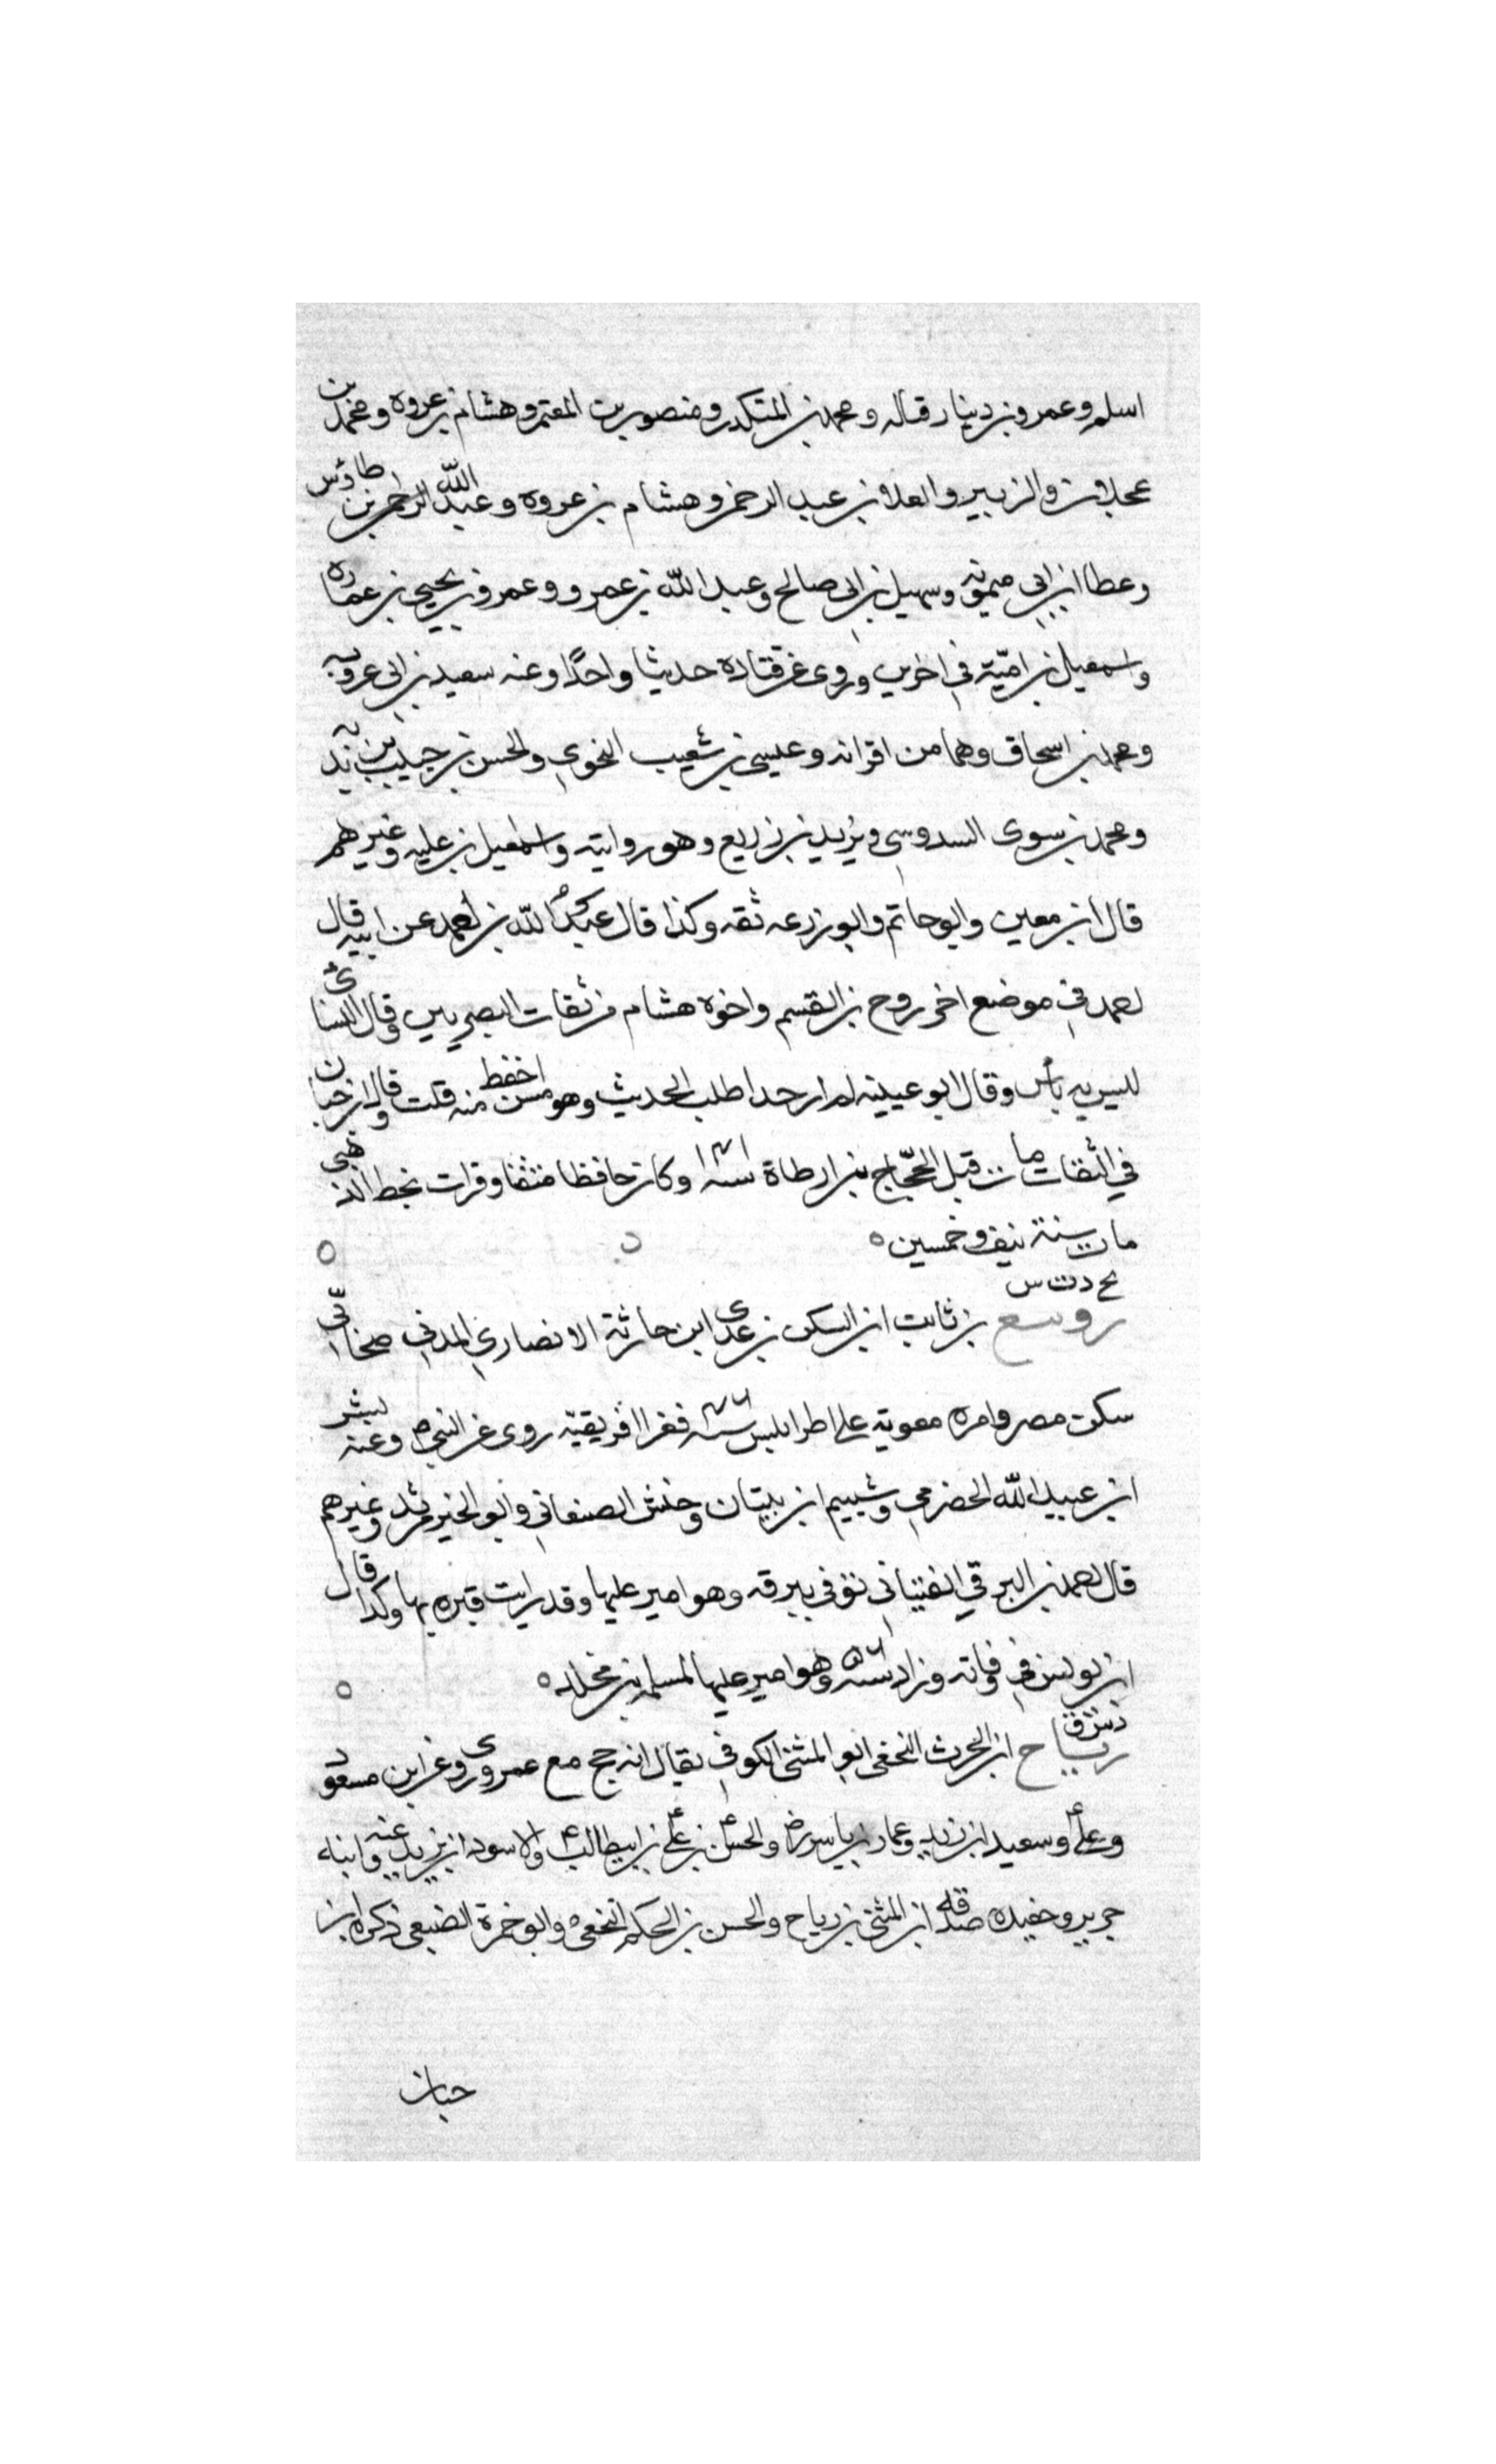 اسلم وعمرو بن دينار قتاله ومحمد بن المتكدر ومنصور بن المعتمر وهشام بن عروه ومحمد بن
عجلان والزبير والعلا بن عبد الرحمن وهشام بن عروه وعبد الله الرحمن بن طاؤس
وعطا ابن ابي ميمونه وسهيل بن ابي صالح وعبد الله بن عمرو وعمرو بن يحيي بن عماره
واسمعيل بن اميّة في اخرين وروى عن قتادة حديثا واحدًا وعنه سعيد بن ابي عروبه
ومحمد بن اسحاق وهما من اقرانه وعيسى بن شعيب النحوي والحسن بن حبيب بن ندبه
ومحمد بن سوى السدوسي ويزيد بن زريع وهو روايته واسمعيل بن عليه وغيرهم
قال ابن معين وابو حاتم وابو زرعه ثقه وكذا قال عبد الله بن احمد عن ابيه قال
احمد في موضع اخر روح بن القسم واخوه هشام من ثقات البصريين وقال النسائ
ليس به بأس وقال ابو عيينه لم ار حدا طلب الحديث وهو مسن احفظ منه قلت قال وابن حبان
في الثقات مات قبل الحجّاج بن ارطاة سنه ١٤١ وكان حافظا متثقا وقرات بخط الذهبي
مات سنة نيف وخمسين ه
بخ د ت س
رويفع بن ثابت ابن السكن بن عدى ابن حارثة الانصاري المدني صحابّي
سكن مصر وامره معوية على اطرابلس سنه ٤٦ فغزا افريقيّه روى عن النبي ص وعنه بشر
ابن عبيد الله الحضرمي وشييم ابن بيتان وحنش الصنعاني وابو الخير مرثد وغيرهم
قال احمد بن البرقي الفتياني توفي ببرقه وهو امير عليها وقد رايت قبره بها وكذا قال
ابن يونس في وفاته وزاد سنه ٥٦ وهو امير عليها لمسلمه بن مخلد ه
د س ق
رياح ابن الحرث النخعي ابو المثنى الكوفي يقال انه حج مع عمر وروى عن ابن مسعود
وعلى وسعيد ابن زيد وعمار بن ياسر رض والحسن بن على بن ابيطالب والاسود ابن يزيد وعنه ابنه
جرير وحفيده صدقه ابن المثنى بن رياح والحسن بن الحكم النخعى وابو حمزة الضبعي ذكره ابن
حبان